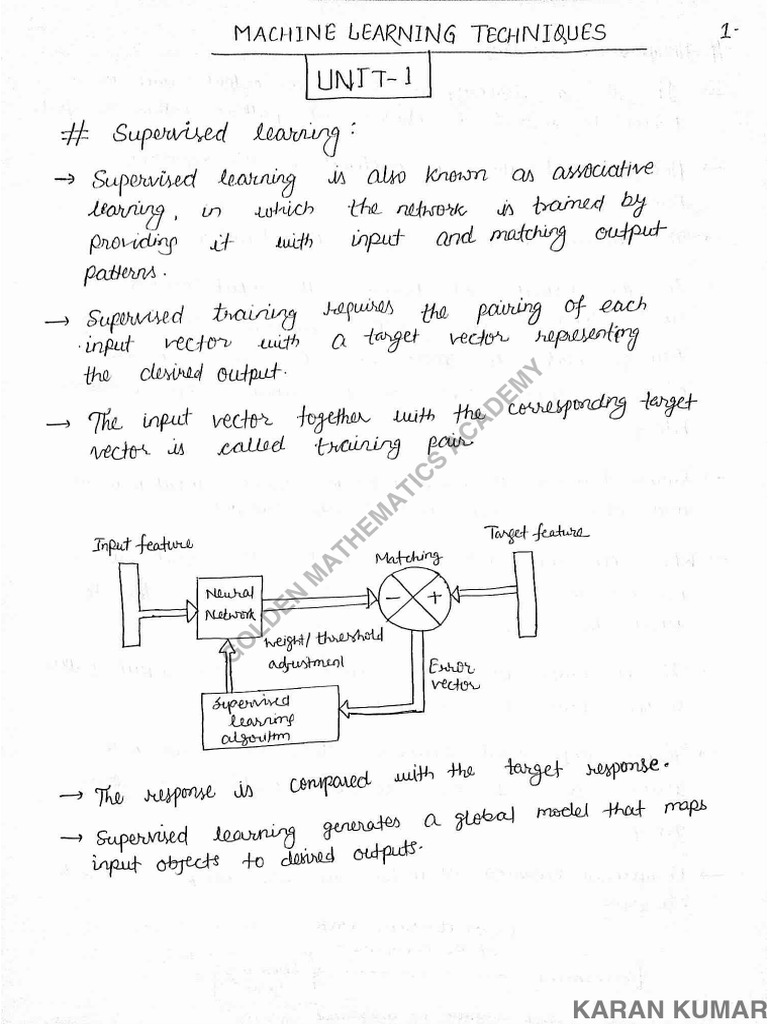 MACHINE LEARNING TECHNIQUES
1-
UNIT-1
# Supervised learning:
→ Supervised learning is also known as associative
learning, in which the network is trained by
providing it with input and matching output
patterns.
→ Supervised training requires the pairing of each
input vector with a target vector representing
the desired output.
→ The input vector together with the corresponding target
vector is called training pair.
Input feature
Target feature
Matching
Neural
Network
- +
weight/threshold
adjustment
Error
vector
Supervised
learning
algorithm
→ The response is compared with the target response.
→ Supervised learning generates a global model that maps
input objects to desired outputs.
GOLDEN MATHEMATICS ACADEMY
KARAN KUMAR